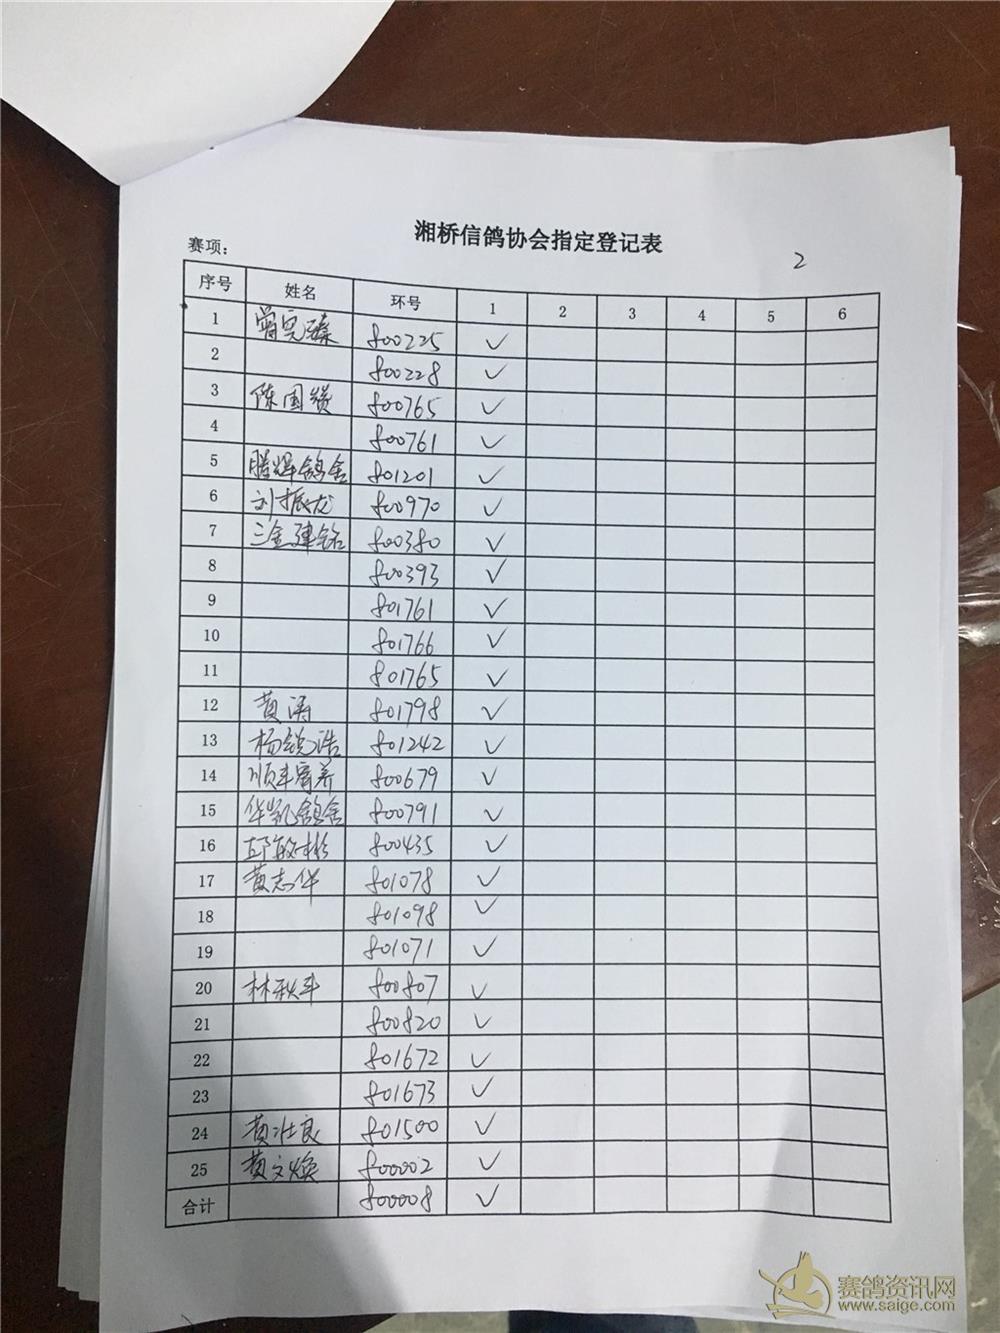 湘桥信鸽协会指定登记表
赛项：
2
序号 姓名 环号 1 2 3 4 5 6
1 800225 ✓
2 800228 ✓
3 陈国贤 800765 ✓
4 800761 ✓
5 腾辉鸽舍 801201 ✓
6 刘振龙 800970 ✓
7 三金建铭 800380 ✓
8 800393 ✓
9 801761 ✓
10 801766 ✓
11 801765 ✓
12 黄涛 801798 ✓
13 杨锐浩 801242 ✓
14 顺丰 800679 ✓
15 华凯鸽舍 800791 ✓
16 邱敏彬 800435 ✓
17 黄志华 801078 ✓
18 801098 ✓
19 801071 ✓
20 林秋丰 800807 ✓
21 800820 ✓
22 801672 ✓
23 801673 ✓
24 黄壮良 801500 ✓
25 黄文焕 800002 ✓
合计 800008 ✓
赛鸽资讯网
www.saige.com